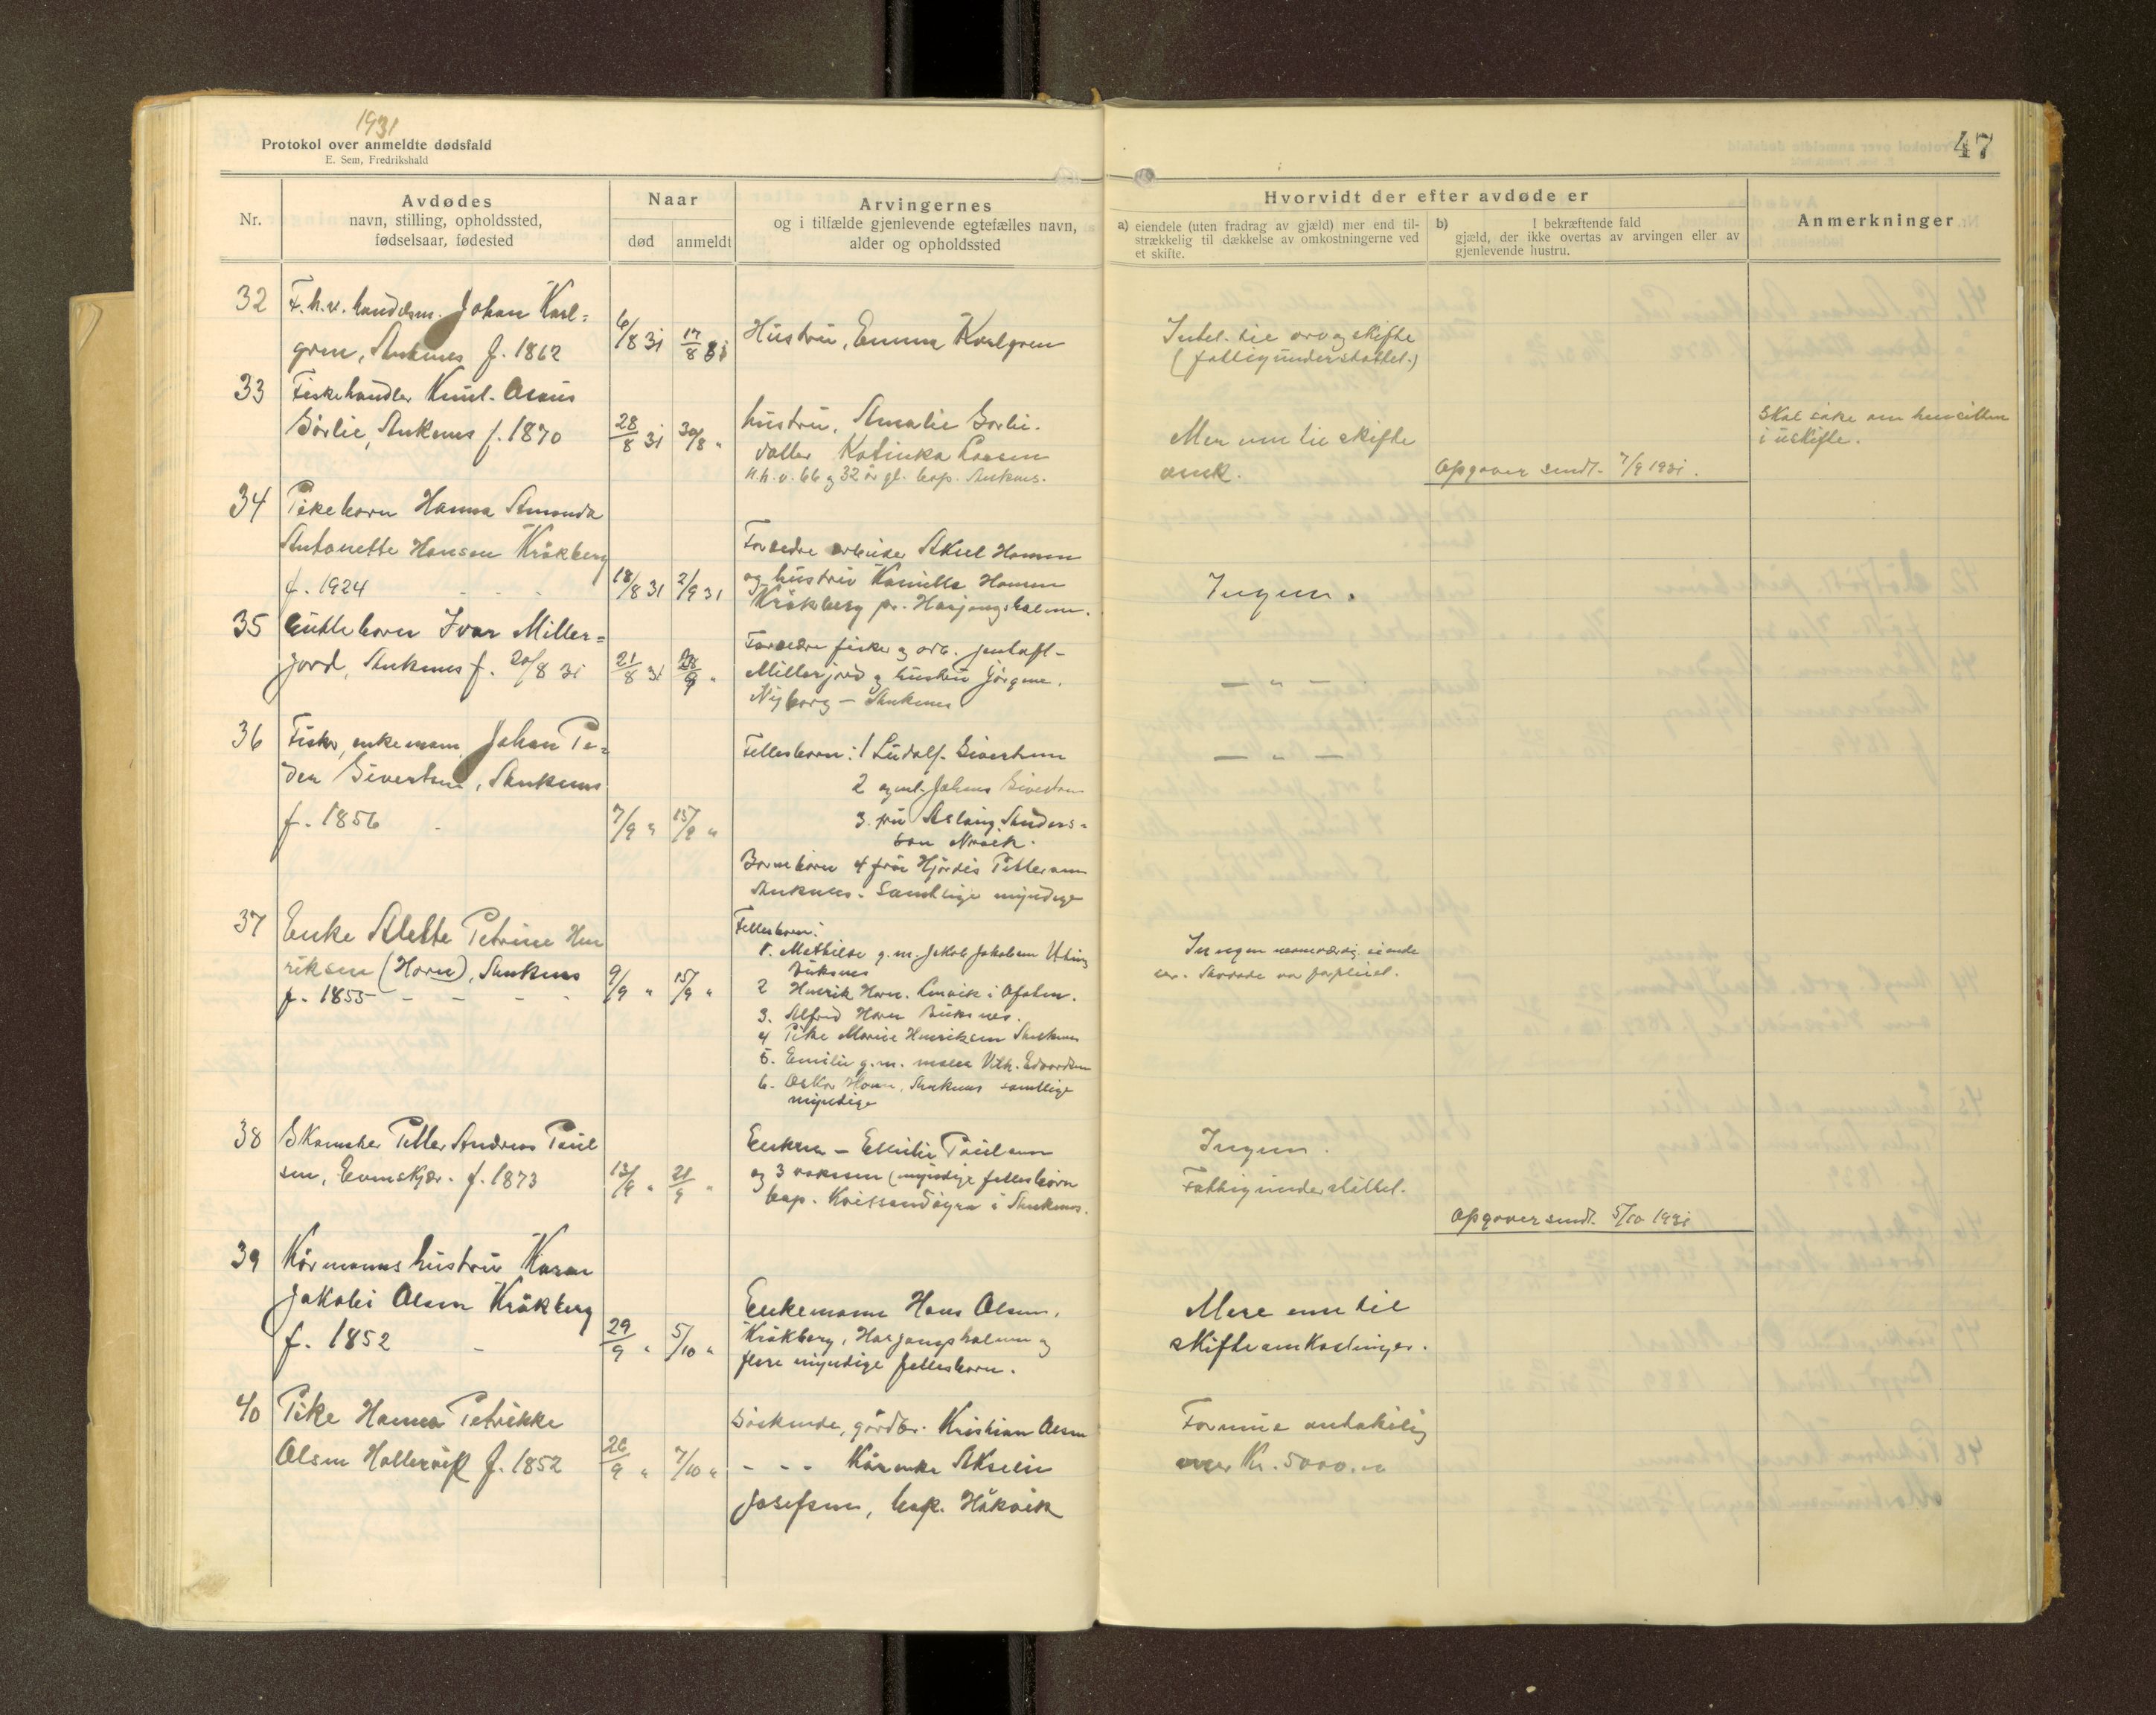 1931
Protokol over anmeldte dødsfald
E. Sem, Fredrikshald
47
Nr.
Avdødes
navn, stilling, opholdssted,
fødselsaar, fødested
Naar
død
anmeldt
Arvingernes
og i tilfælde gjenlevende egtefælles navn,
alder og opholdssted
Hvorvidt der efter avdøde er
a) eiendele (uten fradrag av gjæld) mer end til-
strækkelig til dækkelse av omkostningerne ved
et skifte.
b) I bekræftende fald
gjæld, der ikke overtas av arvingen eller av
gjenlevende hustru.
Anmerkninger
32 F.h.v. handelsm. Johan Karl=
gren, Ankenes f. 1862
6/8 31 17/8 31
Hustru, Emma Karlgren
Intet til arv og skifte
(fattigunderstøttet.)
33 Fiskehandler Knut
Sørlie, Ankenes f. 1870
28/8 31 30/8 "
hustru, Amalie Sørlie.
datter Katinka Larsen
h.h.v. 66 og 32 år gl. Ankenes.
Mer enn til skifte
omk.
Opgaver sendt. 7/9 1931.
Skal søke om hensitten
i uskifte.
34 Pikebarn Hanna Amanda
Antonette Hansen Kråkberg
f. 1924 - - -
18/8 31 2/9 31
Foreldre arbeider Aksel Hansen
og hustru Kamilla Hansen
Kråkberg pr. Harjangshalmen.
Ingen.
35 Guttebarn Ivar Miller=
jord, Ankenes f. 20/8 31
21/8 31
Foreldre fisker og arb. Jentoft
Millerjord og hustru Jørgine.
Nyborg - Ankenes
- " -
36 Fisker, enkemann Johan Pe=
der Sivertsen, Ankenes
f. 1856
7/9 " 15/9 "
Fellesbarn: 1 Ludolf Sivertsen
2 Johans Sivertsen
3. fru Aslaug Anders=
sen Narvik.
Barnebarn 4 frøk Hjørdis Pettersen
Ankenes. Samtlige myndige
- " -
37 Enke Alette Petrine Hen
riksen (Horn), Ankenes
f. 1855 - - - -
9/9 " 15/9 "
Fellesbarn:
1. Mathilde g.m. Jakob Jakobsen
Buksnes
2 Henrik Horn. i Ofoten.
3. Alfred Horn Buksnes.
4 Pike Marie Henriksen Ankenes
5. Emilie g.m. maler Vilh. Edvardsen
6. Oskar Horn, Ankenes samtlige
myndige
Ingen nevneverdig eiende
38 Skomaker Petter Andreas Paul
sen, Evenskjær. f. 1873
13/9 " 21/9 "
Enken - Emilie Paulsen
og 3 voksne (myndige fellesbarn
i Ankenes.
Ingen.
Fattigunderstøttet.
Opgaver sendt. 5/10 1931
39 Kårmanns hustru Karen
Jakobi Olsen Kråkberg
f. 1852 -
29/9 " 5/10 "
Enkemann Hans Olsen,
Kråkberg, Harjangshalmen og
flere myndige fellesbarn.
Mere enn til
skifteomkostninger.
40 Pike Hanna Petrikke
Olsen Hallervik f. 1852
26/9 " 7/10 "
Søskende, gårdbr. Kristian Olsen
- - - Kårenke Akselie
Josefsen, Håkvik
Formue antakelig
over Kr. 5000.00